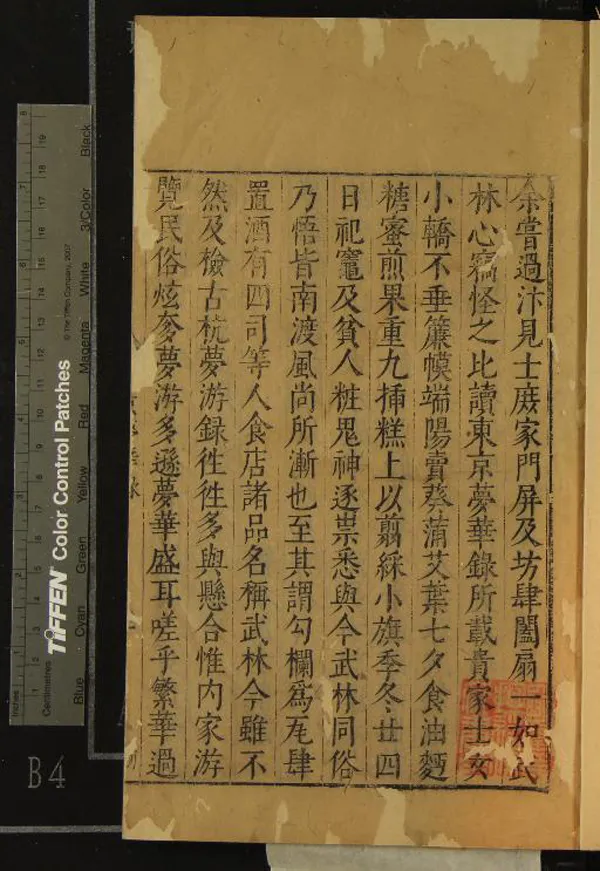 余嘗過汴見士庶家門屏及坊肆闔扇一如武
林心竊怪之比讀東京夢華錄所載貴家士女
小轎不垂簾幙端陽賣葵蒲艾葉七夕食油麪
糖蜜煎果重九揷糕上以剪綵小旗季冬廿四
日祀竈及貧人粧鬼神逐祟悉與今武林同俗
乃悟皆南渡風尚所漸也至其謂勾欄爲瓦肆
置酒有四司等人食店諸品名稱武林今雖不
然及檢古杭夢游録徃徃多與懸合惟内家游
覽民俗炫奓夢游多遜夢華盛耳嗟乎繁華過
B4
TIFFEN Color Control Patches
© The Tiffen Company, 2007
Inches
Centimetres
Blue
Cyan
Green
Yellow
Red
Magenta
White
3/Color
Black